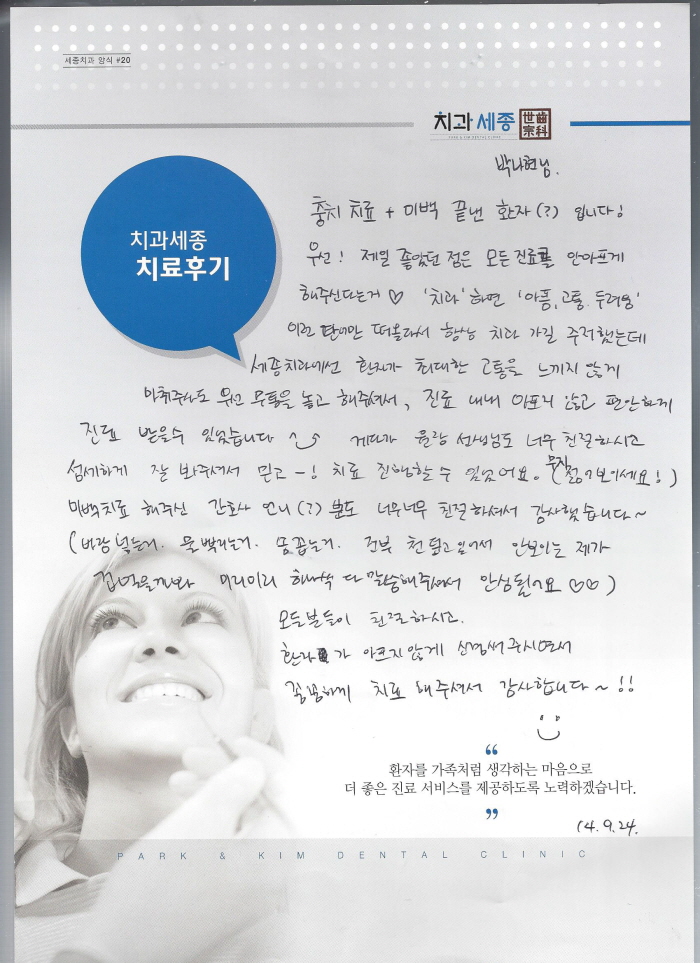 세종치과 양식 #20
치과세종 世宗齒科
박나현님.
치과세종
치료후기
충치 치료 + 미백 끝낸 환자(?) 입니다!
우선! 제일 좋았던 점은 모든 진료를 안아프게
해주신다는거 ♡ '치과'하면 '아픔, 고통. 두려움'
이런 단어만 떠올라서 항상 치과 가길 주저했는데
세종치과에선 환자가 최대한 고통을 느끼지 않게
마취주사도 우선 무통을 놓고 해주셔서, 진료 내내 아프지 않고 편안하게
진료 받을수 있었습니다 ^^ 게다가 원장 선생님도 너무 친절하시고
섬세하게 잘 봐주셔서 믿고-! 치료 진행할 수 있었어요. (무지 젊어보이세요!)
미백치료 해주신 간호사 언니(?)분도 너무너무 친절하셔서 감사했습니다~
(바람 넣는거. 물 뿌리는거. 전부 천 덮고 있어서 안보이는 제가
겁먹을까봐 미리미리 하나씩 다 말씀해주셔서 안심됐어요 ♡♡)
모든분들이 친절하시고.
환자가 아프지 않게 신경써 주시면서
꼼꼼하게 치료 해주셔서 감사합니다~!!
“
환자를 가족처럼 생각하는 마음으로
더 좋은 진료 서비스를 제공하도록 노력하겠습니다.
”
14.9.24.
PARK & KIM DENTAL CLINIC